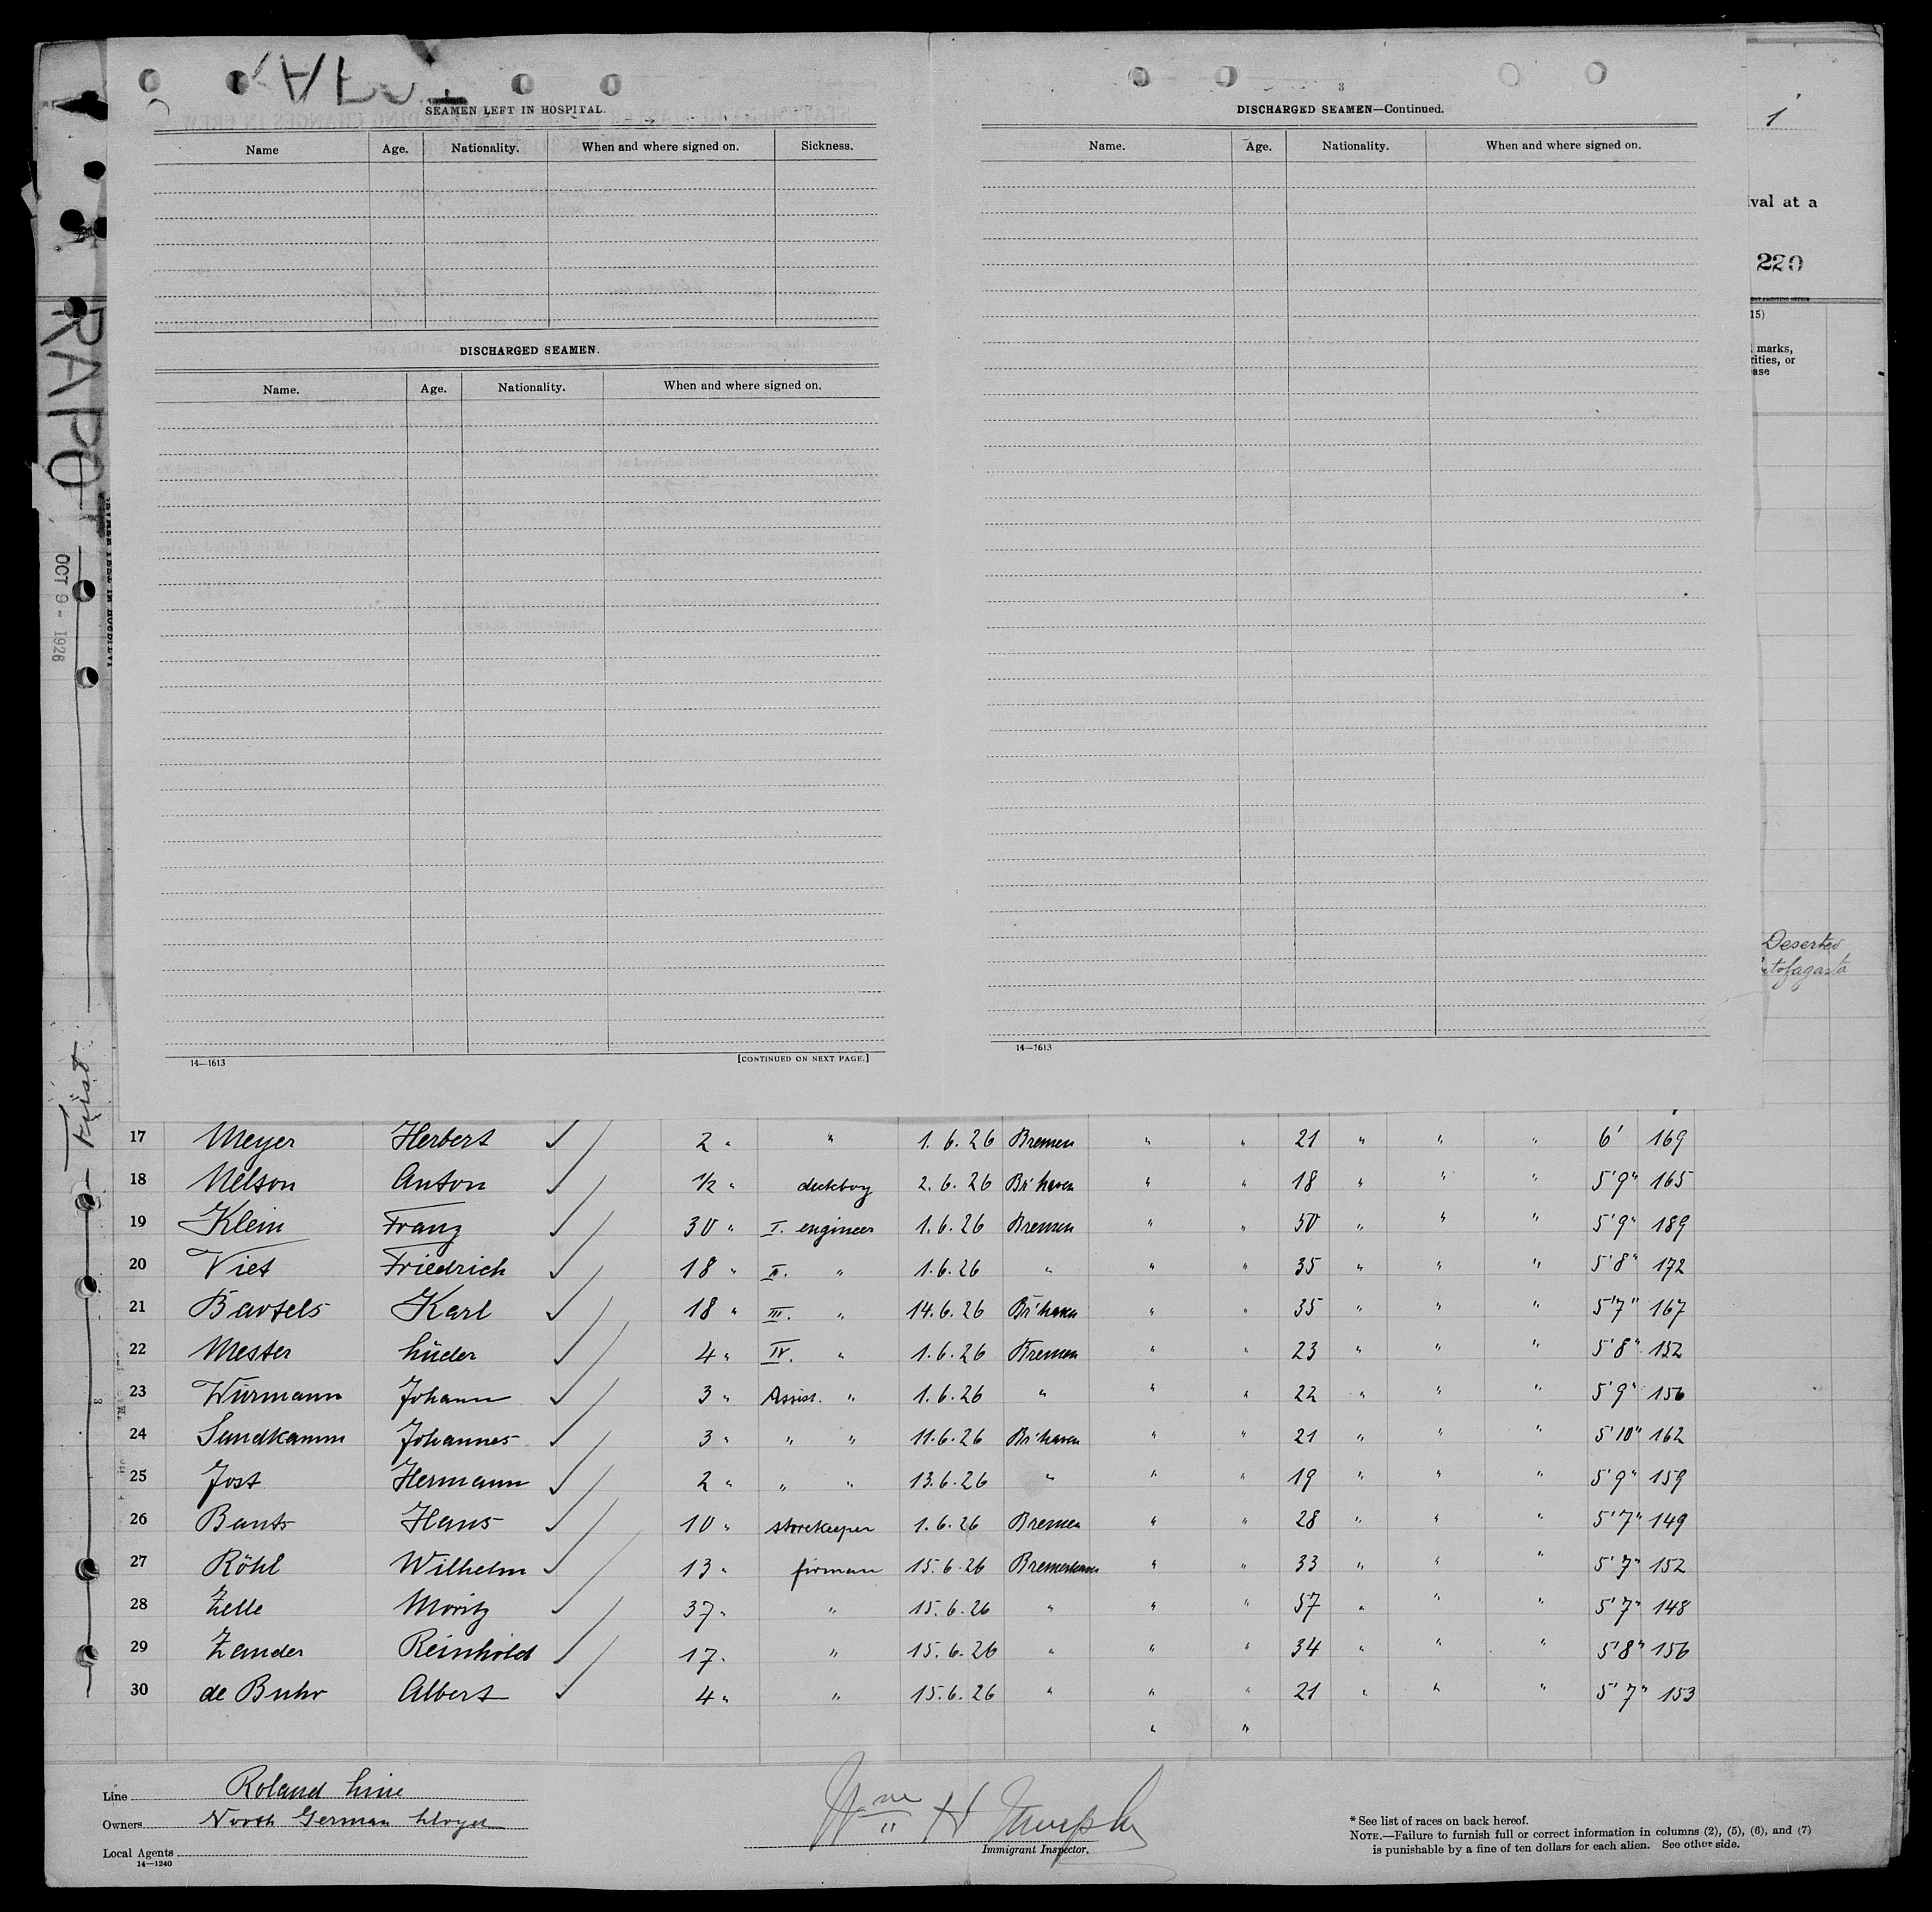 SEAMEN LEFT IN HOSPITAL.
Name Age. Nationality. When and where signed on. Sickness.
DISCHARGED SEAMEN.
Name. Age. Nationality. When and where signed on.
14—1613 [CONTINUED ON NEXT PAGE.]
3
DISCHARGED SEAMEN—Continued.
Name. Age. Nationality. When and where signed on.
14—1613
1
ival at a
220
15)
marks,
rities, or
ease
Deserted
RAPOT
OCT 9 - 1926
First
17 Meyer Herbert ✓ 2 " " 1.6.26 Bremen " " 21 " " " 6' 169
18 Nelson Anton ✓ 1/2 " deckboy 2.6.26 Br'haven " " 18 " " " 5'9" 165
19 Klein Franz ✓ 30 " I. engineer 1.6.26 Bremen " " 50 " " " 5'9" 189
20 Viet Friedrich ✓ 18 " II. " 1.6.26 " " " 35 " " " 5'8" 172
21 Bartels Karl ✓ 18 " III. " 14.6.26 Br'haven " " 35 " " " 5'7" 167
22 Mester Lüder ✓ 4 " IV. " 1.6.26 Bremen " " 23 " " " 5'8" 152
23 Würmann Johann ✓ 3 " Assist. " 1.6.26 " " " 22 " " " 5'9" 156
24 Sundkamm Johannes ✓ 3 " " " 11.6.26 Br'haven " " 21 " " " 5'10" 162
25 Jost Hermann ✓ 2 " " " 13.6.26 " " " 19 " " " 5'9" 159
26 Bants Hans ✓ 10 " storekeeper 1.6.26 Bremen " " 28 " " " 5'7" 149
27 Röhl Wilhelm ✓ 13 " firman 15.6.26 Bremerhaven " " 33 " " " 5'7" 152
28 Zelle Moritz ✓ 37 " " 15.6.26 " " " 57 " " " 5'7" 148
29 Zander Reinhold ✓ 17 " " 15.6.26 " " " 34 " " " 5'8" 156
30 de Buhr Albert ✓ 4 " " 15.6.26 " " " 21 " " " 5'7" 153
" "
Line Roland Line
Owners North German Lloyd
Local Agents
14—1240
Wm H Murphy
Immigrant Inspector.
* See list of races on back hereof.
NOTE.—Failure to furnish full or correct information in columns (2), (5), (6), and (7)
is punishable by a fine of ten dollars for each alien. See other side.